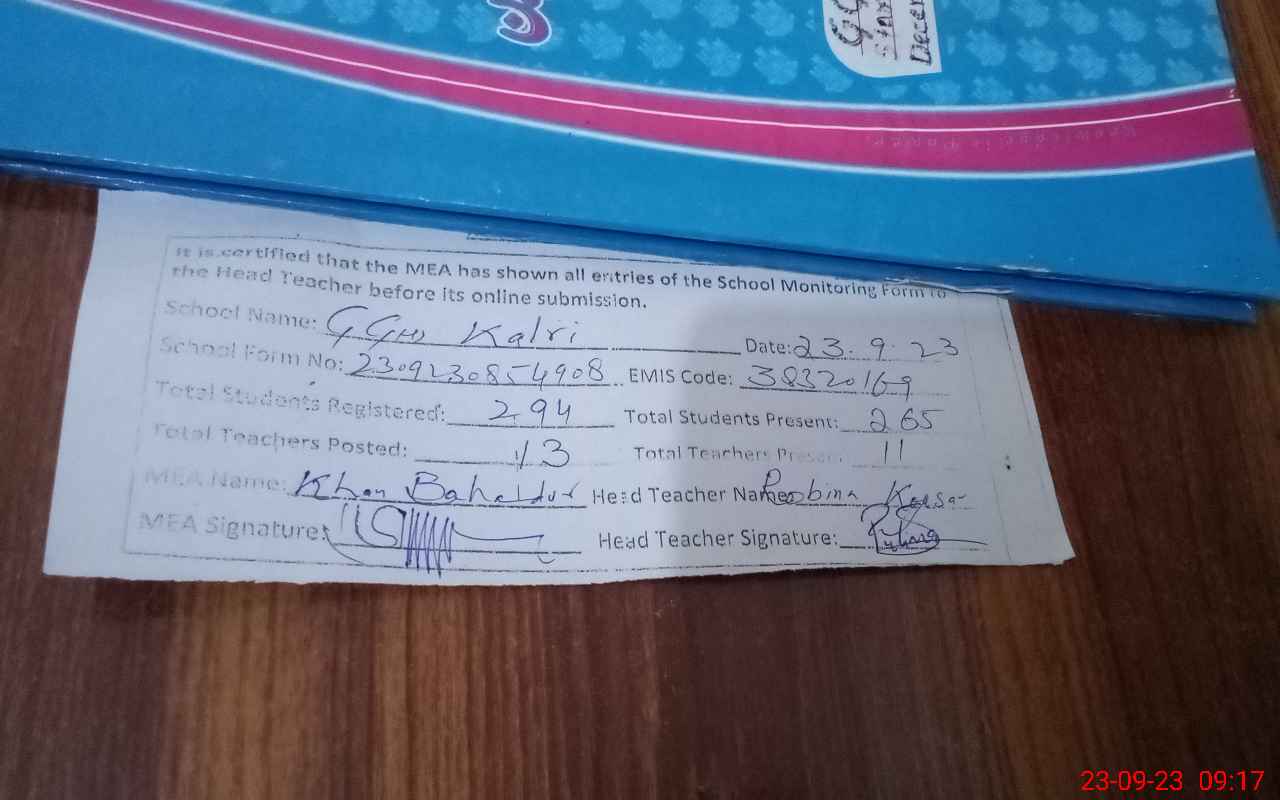 It is certified that the MEA has shown all entries of the School Monitoring Form to
the Head Teacher before its online submission.
School Name: GGHS Kalri Date: 23.9.23
School Form No: 2309230854908 EMIS Code: 38320169
Total Students Registered: 294 Total Students Present: 265
Total Teachers Posted: 13 Total Teachers Present: 11
MEA Name: Khan Bahadur Head Teacher Name: Robina
MEA Signature: Head Teacher Signature:
23-09-23 09:17